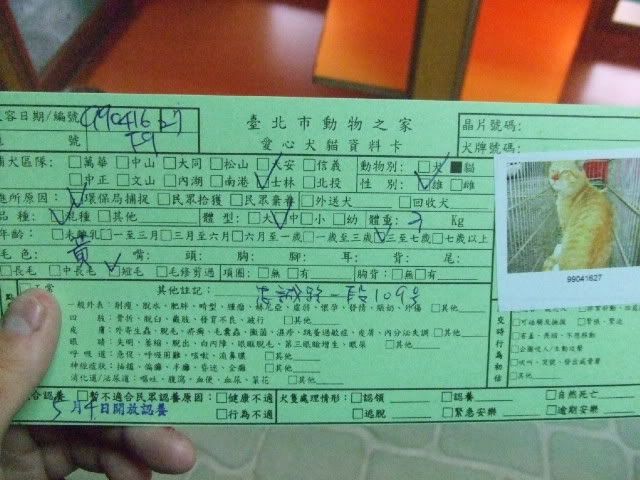 臺北市動物之家
愛心犬貓資料卡
容日期/編號 990416 27
號 F9
晶片號碼:
犬牌號碼:
捕犬區隊: □萬華 □中山 □大同 □松山 □大安 □信義 動物別: □犬 ■貓
□中正 □文山 □內湖 □南港 □士林 □北投 性 別: □雄 □雌
所原因: □環保局捕捉 □民眾拾獲 □民眾棄養 □外送犬 □回收犬
品種: □混種 □其他 體型: □大 □中 □小 □幼 體重: 3 Kg
年齡: □未離乳 □一至三月 □三月至六月 □六月至一歲 □一歲至三歲 □三至七歲 □七歲以上
毛色: 黃 嘴: 頭: 胸: 腳: 耳: 背: 尾:
□長毛 □中長毛 □短毛 □毛修剪過 項圈: □無 □有 胸背: □無 □有
正常 其他註記: 忠誠路一段109號
一般外表: 削瘦、脫水、肥胖、畸型、腫瘤、
四 肢: 骨折、脫臼、截肢、發育不良、跛行 □其他
皮 膚: 外寄生蟲、脫毛、疥癬、毛囊蟲、黴菌、濕疹、跳蚤過敏症、皮屑、內分泌失調 □其他
眼 睛: 失明、萎縮、脫出、白內障、眼瞼脫毛、第三眼瞼增生、眼屎 □其他
呼吸道: 急促、呼吸困難、咳嗽、流鼻膿 □其他
神經症狀: 抽搐、偏癱、半癱、昏迷、全癱 □其他
消化道/泌尿道: 嘔吐、腹瀉、血便、血尿、菜花 □其他
99041627
□其他
合認養 □暫不適合民眾認養原因: □健康不適 犬隻處理情形: □認領 □認養 □自然死亡
5月4日開放認養 □行為不適 □逃脫 □緊急安樂 □逾期安樂